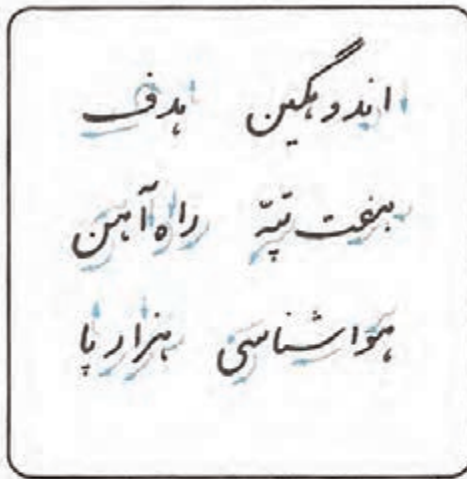 اندوهگین هدف
هفت تپّه راه‌آهن
هواشناسی هزارپا